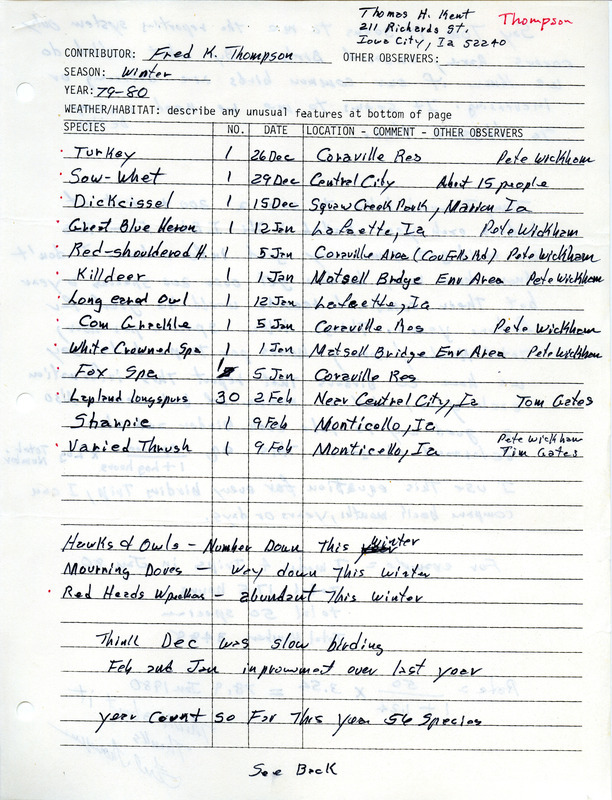 Thomas H. Kent
Thompson
211 Richards St.
Iowa City, Ia 52240
CONTRIBUTOR: Fred K. Thompson OTHER OBSERVERS:
SEASON: Winter
YEAR: 79-80
WEATHER/HABITAT: describe any unusual features at bottom of page
SPECIES NO. DATE LOCATION - COMMENT - OTHER OBSERVERS
Turkey 1 26 Dec Coraville Res Pete Wickham
Sow-Whet 1 29 Dec Central City About 15 people
Dickcissel 1 15 Dec Squaw Creek Park, Marion Ia
Great Blue Heron 1 12 Jan Lafaette, Ia Pete Wickham
Red-shouldered H. 1 5 Jan Coraville Area (Cou Falls Rd) Pete Wickham
Killdeer 1 1 Jan Matsell Brdge Env Area Pete Wickham
Long eared Owl 1 12 Jan Lafaette, Ia
Com Grackle 1 5 Jan Coraville Res Pete Wickham
White Crowned Spa 1 1 Jan Matsell Bridge Env Area Pete Wickham
Fox Spa 1 5 Jan Coraville Res
Lapland longspurs 30 2 Feb Near Central City, Ia Tom Gates
Sharpie 1 9 Feb Monticello, Ia
Varied Thrush 1 9 Feb Monticello, Ia Pete Wickham
Tim Gates
Hawks & Owls - Number Down This Winter
Mourning Doves - way down This winter
Red Heads Wpeckers - abundant This winter
Think Dec was slow birding
Feb and Jan improvment over last year
year Count so For This Year 56 Species
See Back